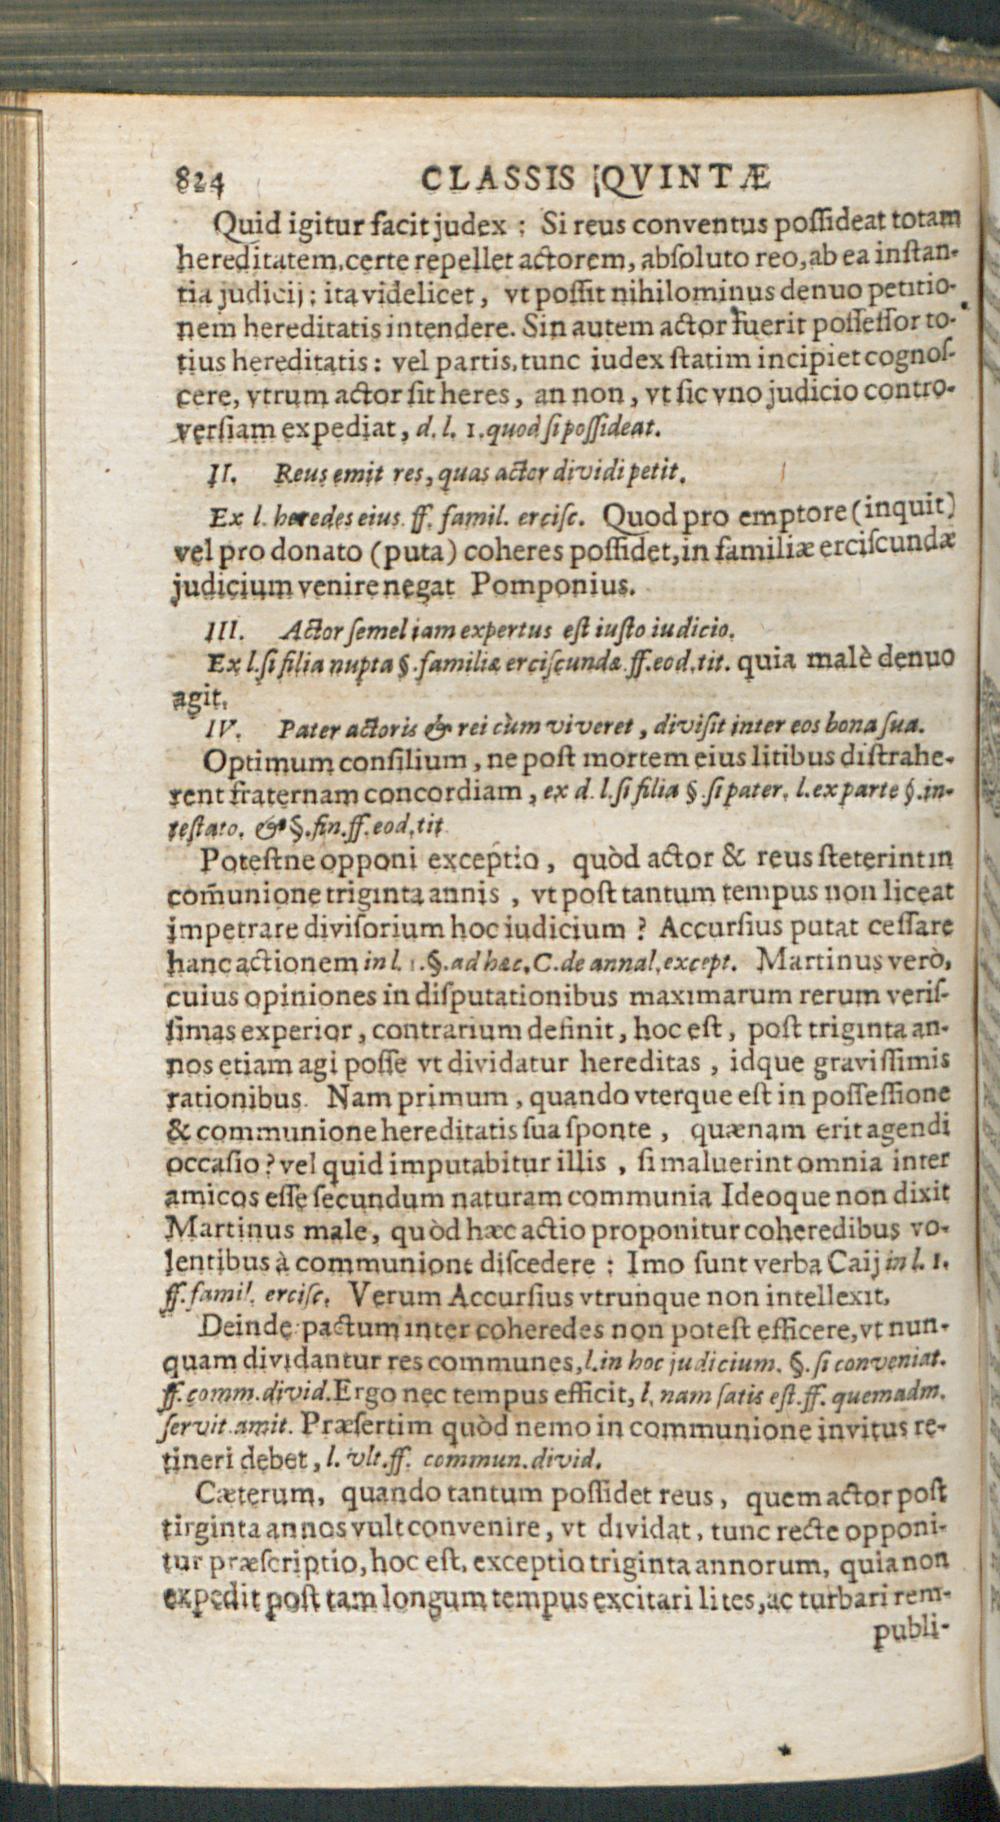 824 CLASSIS QVINTÆ
Quid igitur facit judex : Si reus conventus possideat totam
hereditatem, certe repellet actorem, absoluto reo, ab ea instan-
tia judicij : ita videlicet, vt possit nihilominus denuo petitio-
nem hereditatis intendere. Sin autem actor fuerit possessor to-
tius hereditatis : vel partis, tunc iudex statim incipiet cognos-
cere, vtrum actor sit heres, an non, vt sic vno judicio contro-
versiam expediat, d. l. 1. quod si possideat.
II. Reus emit res, quas actor dividi petit.
Ex l. heredes eius. ff. famil. ercisc. Quod pro emptore (inquit)
vel pro donato (puta) coheres possidet, in familiæ erciscundæ
judicium venire negat Pomponius.
III. Actor semel iam expertus est iusto iudicio.
Ex l. si filia nupta §. familiæ erciscundæ. ff. eod. tit. quia malè denuo
agit.
IV. Pater actoris & rei cùm viveret, divisit inter eos bona sua.
Optimum consilium, ne post mortem eius litibus distrahe-
rent fraternam concordiam, ex d. l. si filia §. si pater. l. ex parte §. in-
testato. & §. fin. ff. eod. tit
Potestne opponi exceptio, quòd actor & reus steterint in
com̃unione triginta annis, vt post tantum tempus non liceat
impetrare divisorium hoc iudicium ? Accursius putat cessare
hanc actionem in l. 1. §. ad hæc, C. de annal. except. Martinus verò,
cuius opiniones in disputationibus maximarum rerum veris-
simas experior, contrarium definit, hoc est, post triginta an-
nos etiam agi posse vt dividatur hereditas, idque gravissimis
rationibus. Nam primum, quando vterque est in possessione
& communione hereditatis sua sponte, quænam erit agendi
occasio ? vel quid imputabitur illis, si maluerint omnia inter
amicos esse secundum naturam communia Ideoque non dixit
Martinus male, quòd hæc actio proponitur coheredibus vo-
lentibus à communione discedere : Imo sunt verba Caij in l. 1.
ff. famil. ercisc. Verum Accursius vtrunque non intellexit.
Deinde pactum inter coheredes non potest efficere, vt nun-
quam dividantur res communes, l. in hoc judicium. §. si conveniat.
ff. comm. divid. Ergo nec tempus efficit, l. nam satis est. ff. quemadm.
servit. amit. Præsertim quòd nemo in communione invitus re-
tineri debet, l. vlt. ff. commun. divid.
Cæterum, quando tantum possidet reus, quem actor post
tirginta annos vult convenire, vt dividat, tunc recte opponi-
tur præscriptio, hoc est, exceptio triginta annorum, quia non
expedit post tam longum tempus excitari lites, ac turbari rem-
publi-